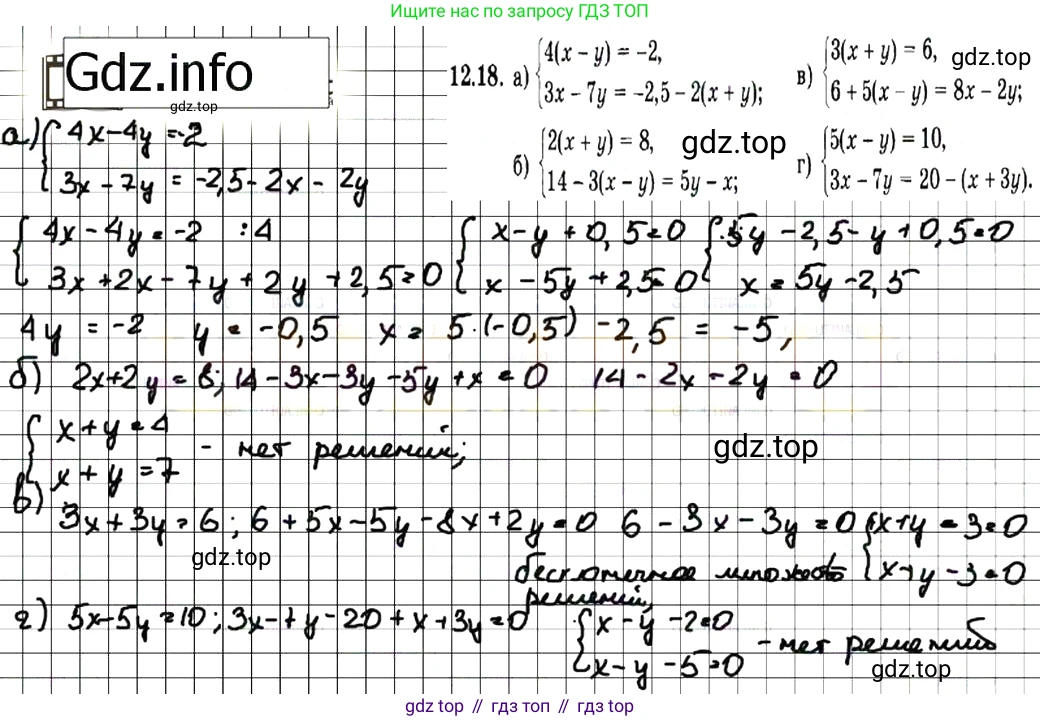 Ищите нас по запросу ГДЗ ТОП
Gdz.info
gdz.top
12.18. а) {4(x − y) = −2,
3x − 7y = −2,5 − 2(x + y);
в) {3(x + y) = 6,
6 + 5(x − y) = 8x − 2y;
gdz.top
б) {2(x + y) = 8,
14 − 3(x − y) = 5y − x;
gdz.top
г) {5(x − y) = 10,
3x − 7y = 20 − (x + 3y).
а) {4x−4y =-2
3x − 7y = −2,5− 2x − 2y
{4x − 4y = −2 :4
3x +2x − 7y + 2y + 2,5=0
{x−y + 0,5=0
x − 5y + 2,5=0
{5y −2,5−y +0,5=0
x = 5y −2,5
4y = −2 y = −0,5 x = 5·(−0,5) −2,5 = −5,
б) 2x+2y = 8; 14 −3x−3y −5y +x = 0 14 − 2x − 2y = 0
{x + y = 4
x + y = 7
- нет решений;
gdz.top
в) 3x + 3y = 6; 6 + 5x −5y −8x +2y =0 6 − 3x − 3y =0
{x+y − 3=0
x+y −3=0
gdz.top
бесконечное множество
решений,
г) 5x−5y =10; 3x−7y −20 + x +3y =0
{x − y −2=0
x− y −5=0
- нет решений
gdz.top
gdz top // гдз топ // gdz top